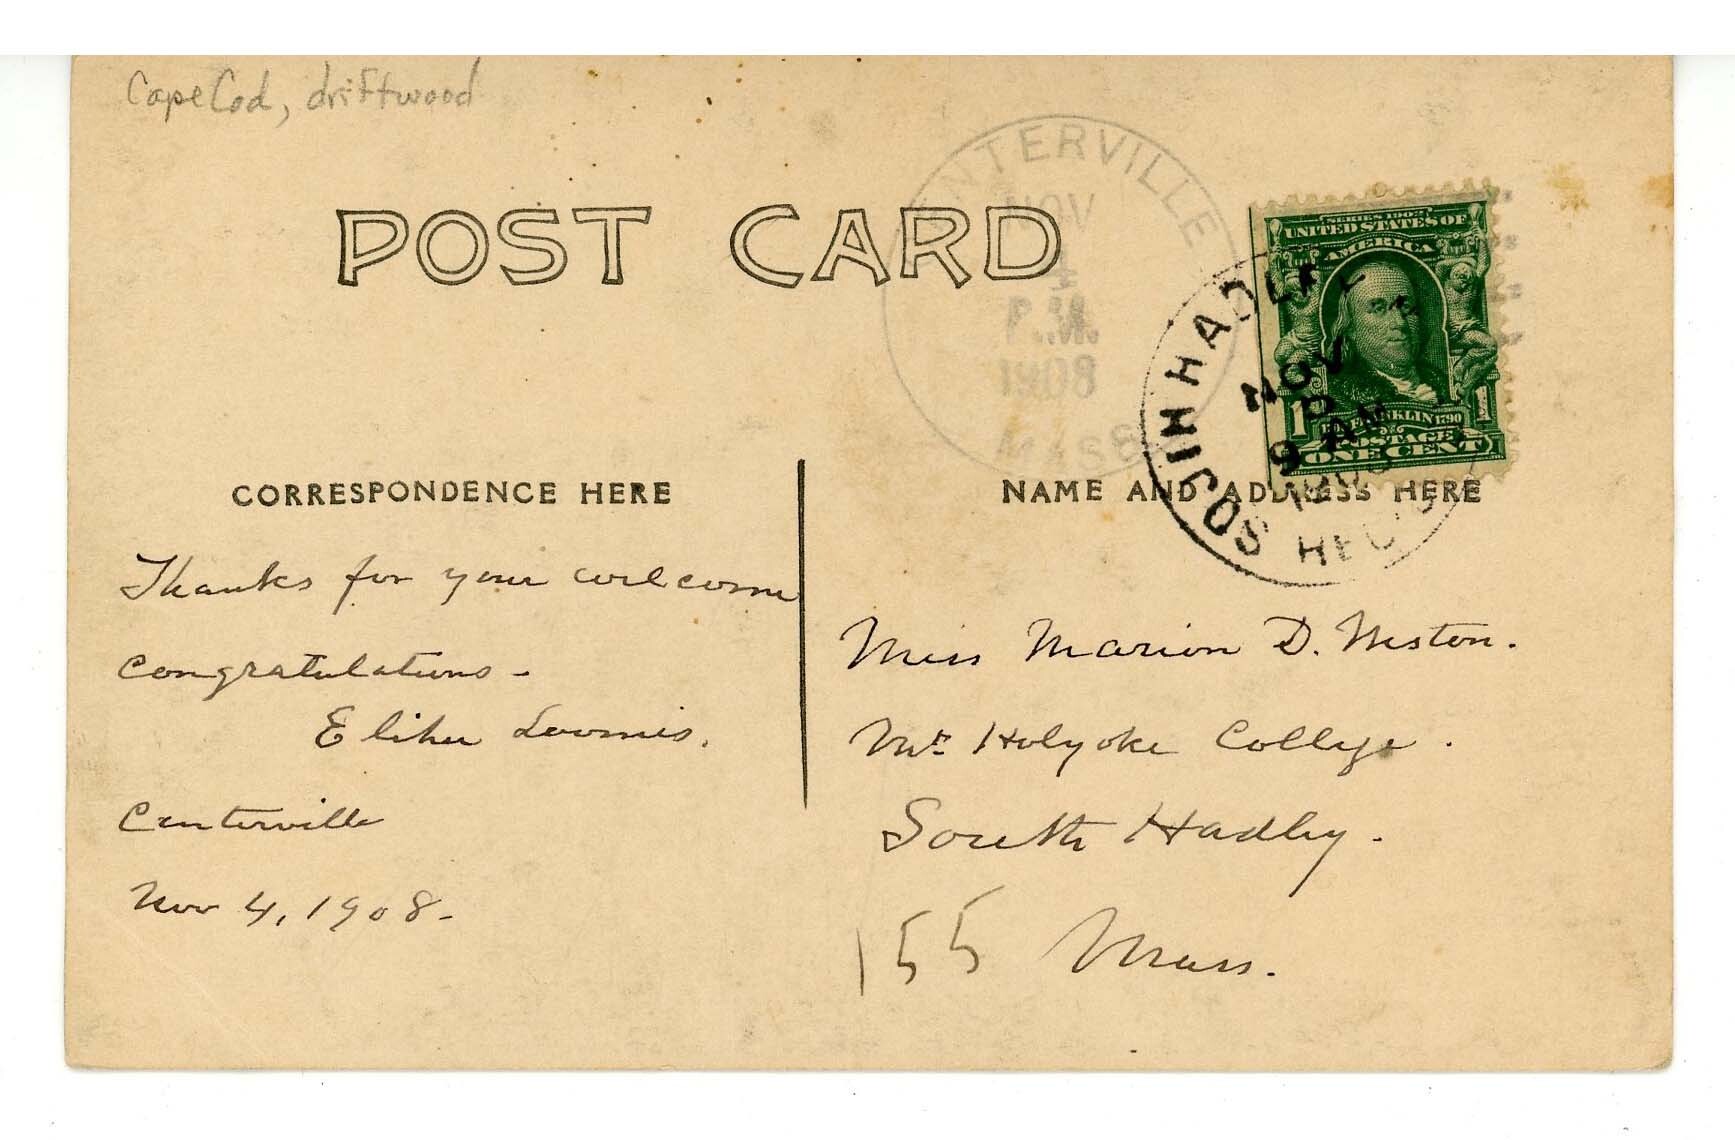 Cape Cod, driftwood
POST CARD
ENTERVILLE
NOV
4
P.M.
1908
MASS
SERIES 1902
UNITED STATES OF
AMERICA
FRANKLIN 1790
1 1
POSTAGE
ONE CENT
SOUTH HADLE
NOV
9 AM
REC'D
CORRESPONDENCE HERE
NAME AND ADDRESS HERE
Thanks for your welcome
congratulations -
Elihu Loomis.
Centerville
Nov 4, 1908-
Miss Marion D. Weston.
Mt Holyoke College.
South Hadley.
155 Mass.